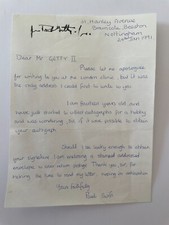 Harley Avenue
Bramcote, Beeston
Nottingham
Jan 1991
Dear Mr GETTY II
Please let me apologise
for writing to you at the London clinic, but it was
the only address I could find to write to you.
I am fourteen years old and
have just started to collect autographs for a hobby
and was wondering, if it were possible to obtain
your autograph.
Should I be lucky enough to obtain
your signature I am enclosing a stamped addressed
envelope to save return postage. Thank you, Sir, for
making the time to read my letter, hoping in anticipation
Yours faithfully